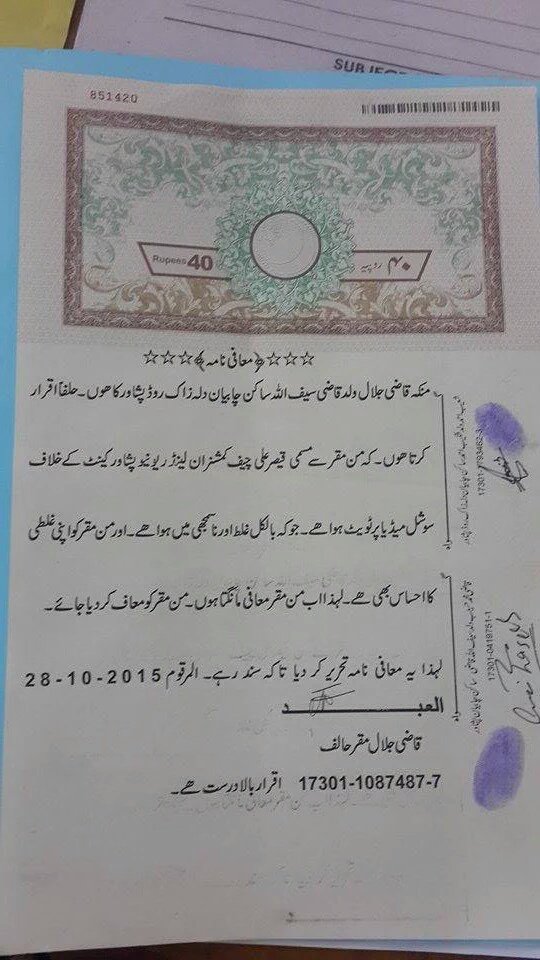 SUBJECT
851420
Rupees 40
۴۰ روپیہ
☆☆☆☆﴿معافی نامہ﴾☆☆☆
منکہ قاضی جلال ولد قاضی سیف اللہ ساکن چابیان دلہ زاک روڈ پشاور کا ھوں۔ حلفاً اقرار
کرتا ھوں۔ کہ من مقر سے مسمی قیصر علی چیف کمشنر ان لینڈ ریونیو پشاور کینٹ کے خلاف
سوشل میڈیا پر ٹویٹ ہوا ھے۔ جو کہ بالکل غلط اور ناسمجھی میں ہوا ھے۔ اور من مقر کو اپنی غلطی
کا احساس بھی ھے۔ لہذا اب من مقر معافی مانگتا ہوں۔ من مقر کو معاف کر دیا جائے۔
لہذا یہ معافی نامہ تحریر کر دیا تاکہ سند رہے۔ المرقوم 28-10-2015
العبد
قاضی جلال مقر حالف
17301-1087487-7 اقرار بالا درست ھے۔
گواہ
گواہ
17301-0419751-1